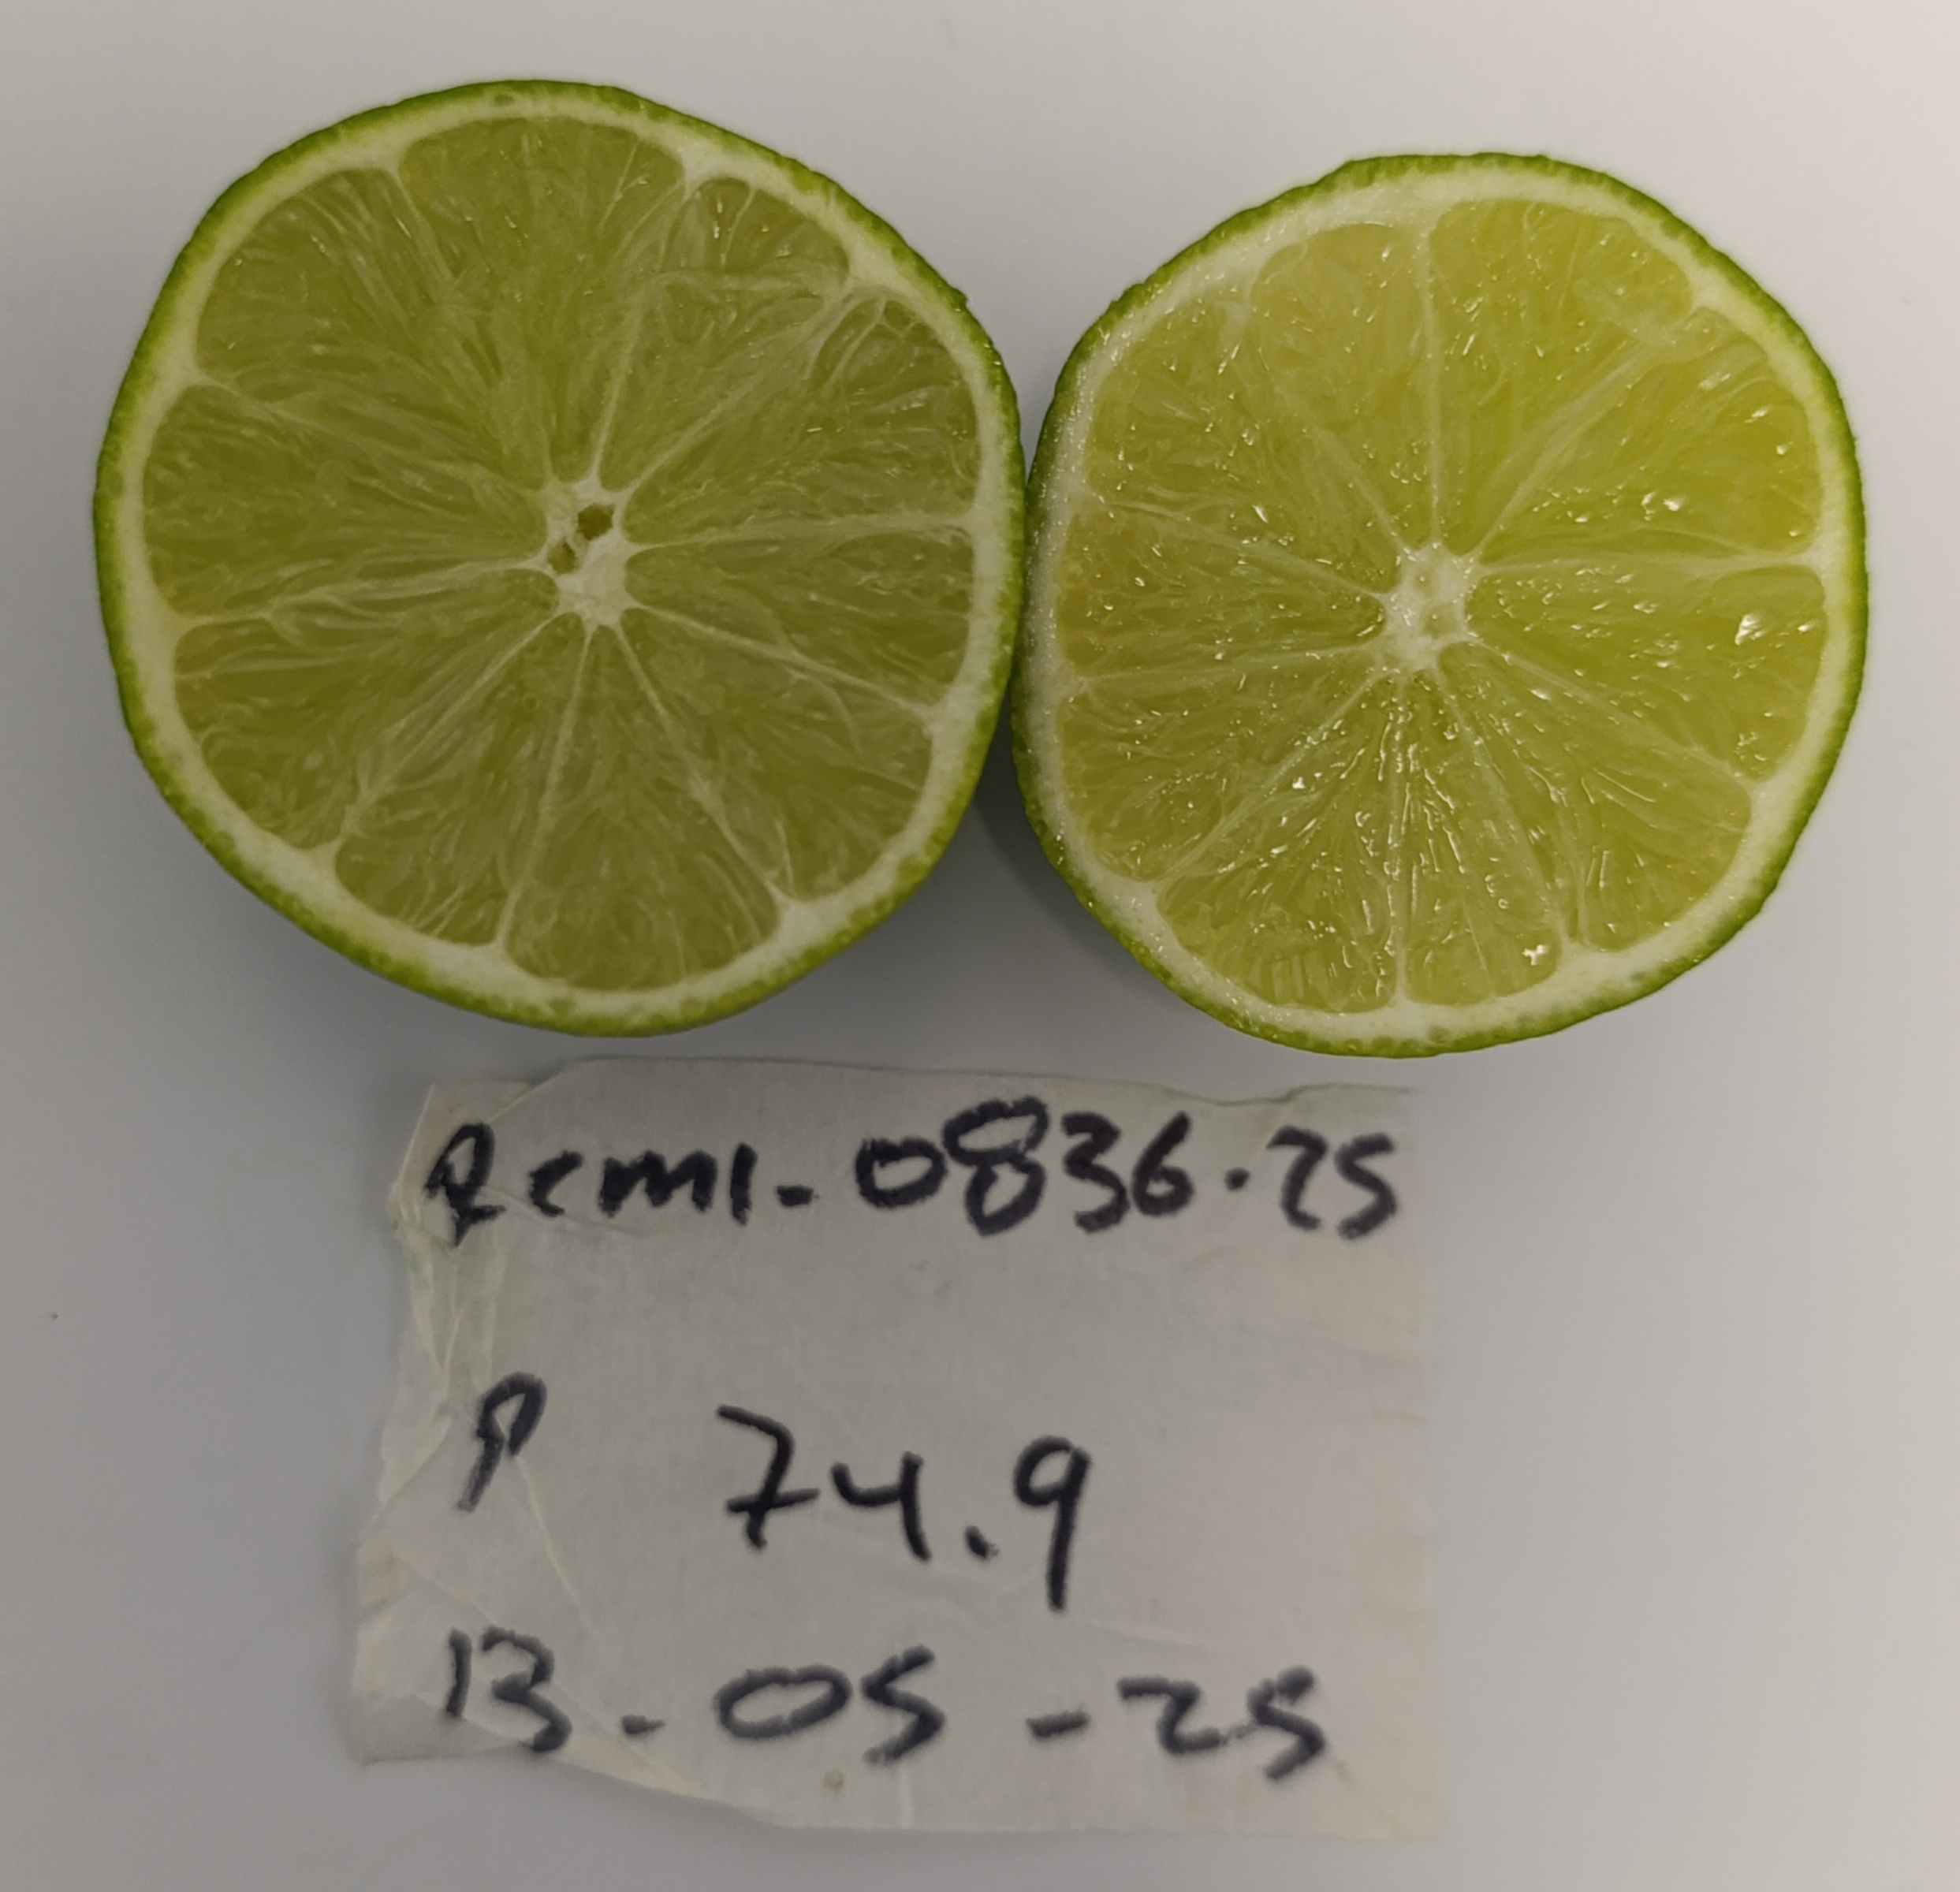 Rcml-0836.25
P 74.9
13-05-25